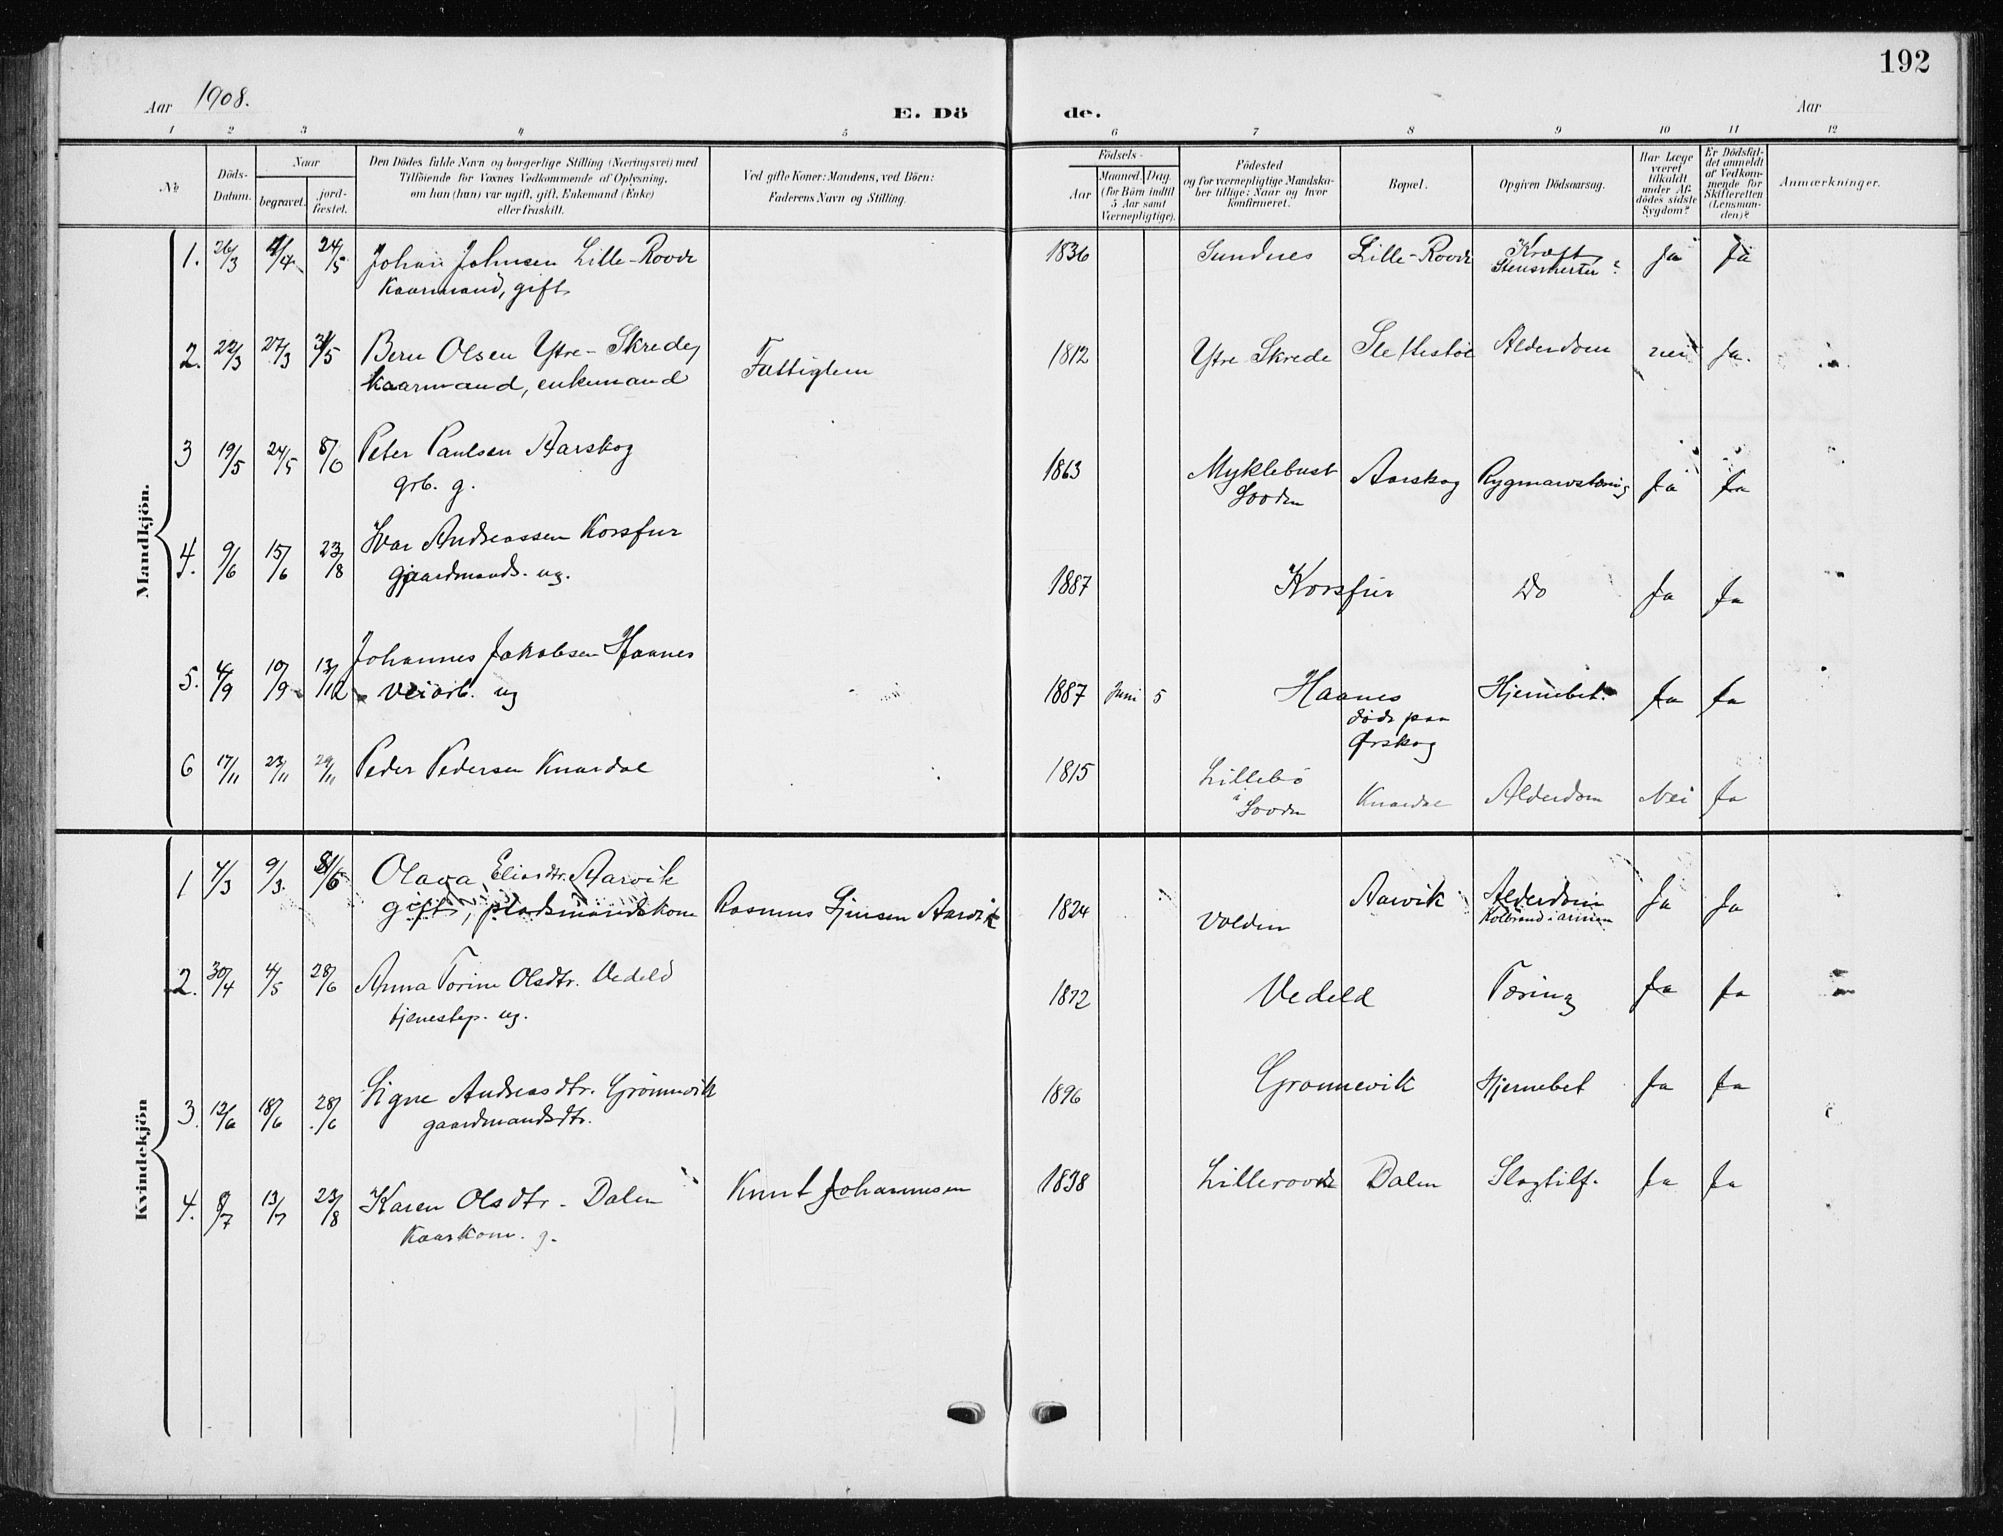 192
Aar 1908.
E. Dö
de.
Aar
1 2 3 4 5 6 7 8 9 10 11 12
No
Döds-
Datum.
Naar
begravet.
jord-
fæstet.
Den Dödes fulde Navn og borgerlige Stilling (Næringsvei) med
Tilföiende for Voxnes Vedkommende af Oplysning,
om han (hun) var ugift, gift, Enkemand (Enke)
eller fraskilt.
Ved gifte Koner: Mandens, ved Börn:
Faderens Navn og Stilling.
Födsels-
Aar
Maaned. Dag.
(for Börn indtil
5 Aar samt
Værnepligtige).
Födested
og for værnepligtige Mandska-
ber tillige: Naar og hvor
konfirmeret.
Bopæl.
Opgiven Dödsaarsag.
Har Læge
været
tilkaldt
under Af-
dödes sidste
Sygdom?
Er Dödsfal-
det anmeldt
af Vedkom-
mende for
Skifteretten
(Lensman-
den)?
Anmærkninger.
Mandkjön.
1. 26/3 4/4 24/5 Johan Johnsen Lille-Roovde 1836 Sundnes Lille-Roovde Kræft Ja Ja
Kaarmand, gift
2. 22/3 27/3 31/5 Bern Olsen Ytre-Skrede, Fattiglem 1812 Ytre Skrede Slettestöl Alderdom nei Ja.
kaarmand, enkemand
3 19/5 24/5 Peter Paulsen Aarskog 1863 Myklebust Aarskog Rygmarvstæring Ja Ja
grb. g.
4. 9/6 15/6 23/8 Ivar Andreassen Korsfur 1887 Korsfur Do Ja Ja
gaardmands. ug.
5. 4/9 10/9 13/12 Johannes Jakobsen Haanes 1887 Juni 5 Haanes Hjernebet. Ja Ja
Veiarb. ug
døde paa
Ørskog
6 17/11 23/11 29/11 Peder Pedersen Knardal 1815 Lillebö Knardal Alderdom Nei Ja
Kvindekjön
1 4/3 9/3. Olava Eliasdtr. Aarvik Aarvik Alderdom Ja Ja
gift, pladsmandskone Rasmus Aarvik 1824 Volden Kolbrand i armen
2. 30/4 4/5 28/6 Anna Torine Olsdtr. Vedeld 1872 Vedeld Tæring Ja Ja
tjenestep. ug.
3. 12/6 18/6 28/6 Signe Andreasdtr. Grönnevik 1896 Grønnevik Hjernebet Ja Ja
gaardmandsdtr.
4. 8/7 13/7 23/8 Karen Olsdtr. Dalen Knut Johannesen 1838 Lilleroovde Dalen Slagtilf. Ja Ja
Kaarkone. g.